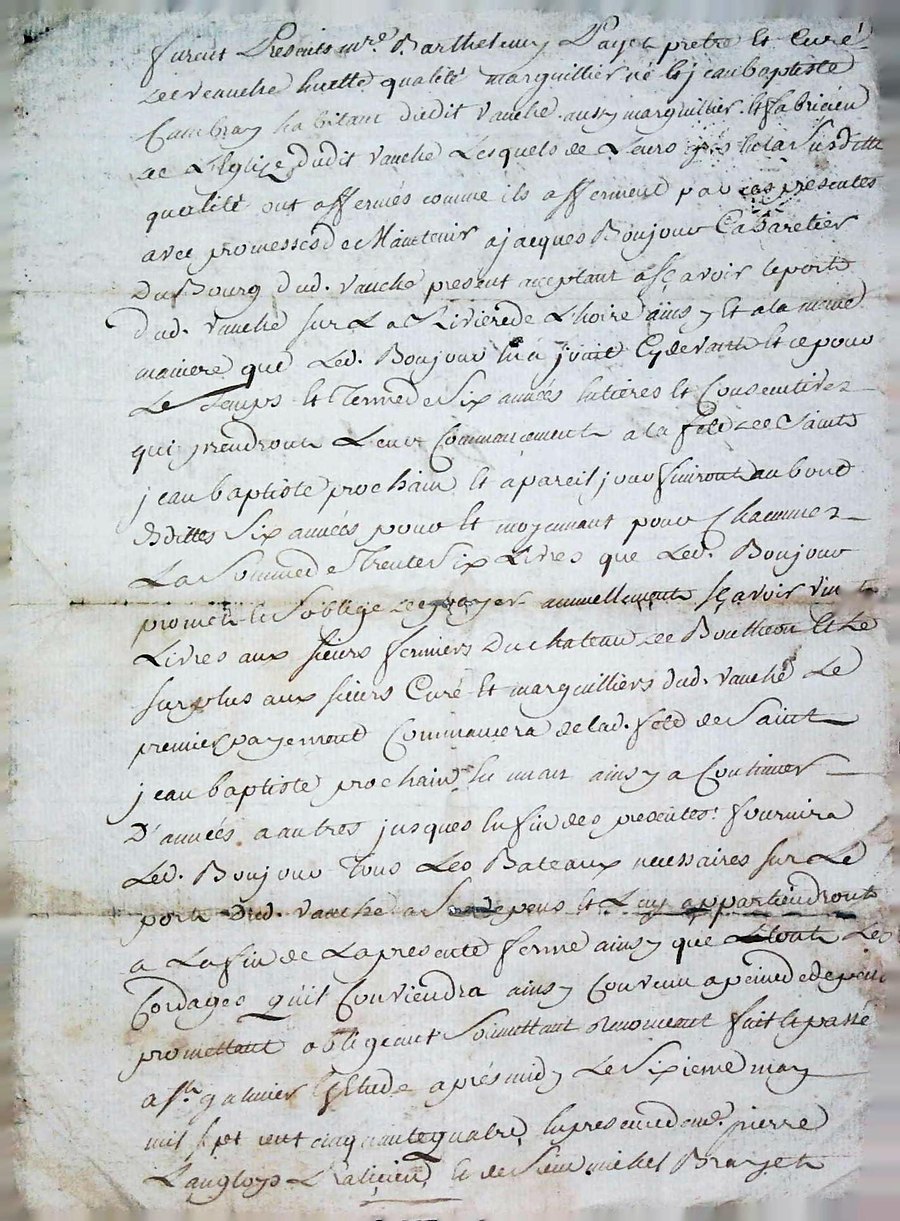 furent Presents mre. Barthelemy Payet pretre et Curé
de veauche en cette qualité marguillier né et jean baptiste
Cambray habitant dudit vauche aussy marguillier et fabricien
de L'Eglise dudit vauche Lesquels de Leurs grés et en la Susditte
qualité ont affermés comme ils afferment par ces presentes
avec promesses de Maintenir a jacques Boujour Cabaretier
Du Bourg dud. vauche present acceptant asçavoir le port
dud. vauche sur La Riviere de Lhoire ainsy Et a la meme
maniere que Led. Boujour en a jouit Cy devant et ce pour
Le Temps et Terme de Six années entieres et Consecutives
qui prendront Leur Commancement a la fete de Saint
jean baptiste prochain et apareil jour finiront au bout
desdittes Six années pour et moyennant pour Chacunne
La Somme de Trente Six Livres que Led. Boujour
promet et S'oblige de payer annuellement sçavoir vint
Livres aux sieurs fermiers Du chateau de Boutheon et Le
surplus aux sieurs Curé et marguilliers dud. vauche Le
premier payement Commancera de lad. fete de Saint
jean baptiste prochain en un an ainsy a Continuer
D'années a autres jusques en fin des presentes. fournira
Led. Boujour Tous Les Bateaux necessaires sur Le
port dud. vauche a Ses depens et Luy appartiendront
a La fin de La presente ferme ainsy que Les
Cordages qu'il Conviendra ainsy Convenu a peine de depens
promettant obligeant Soumettant Renonceant fait et passé
a St. galmier Estude aprés midy Le Sixieme may
mil sept cent cinquante quatre en presence de me. pierre
Langloys Praticien et de Sieur michel Brayet